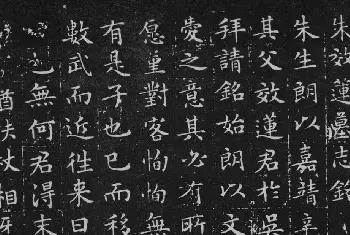 朱效蓮墓志銘
朱生朗以嘉靖辛
其父效蓮君於吳
拜請銘始朗以文
愛之意其必有所
愿重對客恂恂無
有是子也已而移
數武而近徃来日
也無何君淂末
猶扶杖相